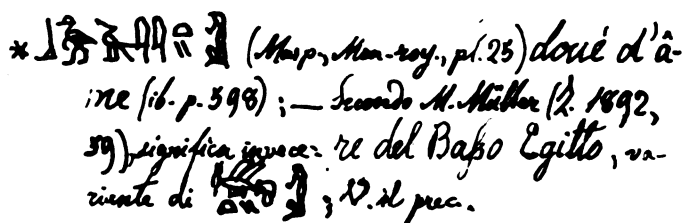 * (Masp., Mom-roy., pl. 25) doué d'â-
me (ib. p. 398) ; — Secondo M. Müller (Z. 1892,
59), significa invece: re del Basso Egitto, va-
riente di ; V. il prec.